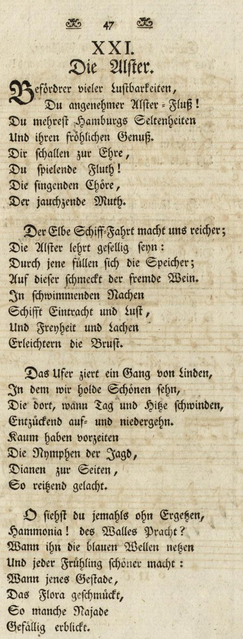 47
XXI.
Die Alster.
Befördrer vieler Lustbarkeiten,
Du angenehmer Alster-Fluß!
Du mehrest Hamburgs Seltenheiten
Und ihren fröhlichen Genuß.
Dir schallen zur Ehre,
Du spielende Fluth!
Die singenden Chöre,
Der jauchzende Muth.
Der Elbe Schiff-Fahrt macht uns reicher;
Die Alster lehrt gesellig seyn:
Durch jene füllen sich die Speicher;
Auf dieser schmeckt der fremde Wein.
In schwimmenden Nachen
Schifft Eintracht und Lust,
Und Freyheit und Lachen
Erleichtern die Brust.
Das Ufer ziert ein Gang von Linden,
In dem wir holde Schönen sehn,
Die dort, wann Tag und Hitze schwinden,
Entzückend auf- und niedergehn.
Kaum haben vorzeiten
Die Nymphen der Jagd,
Dianen zur Seiten,
So reitzend gelacht.
O siehst du jemahls ohn Ergetzen,
Hammonia! des Walles Pracht?
Wann ihn die blauen Wellen netzen
Und jeder Frühling schöner macht:
Wann jenes Gestade,
Das Flora geschmückt,
So manche Najade
Gefällig erblickt.